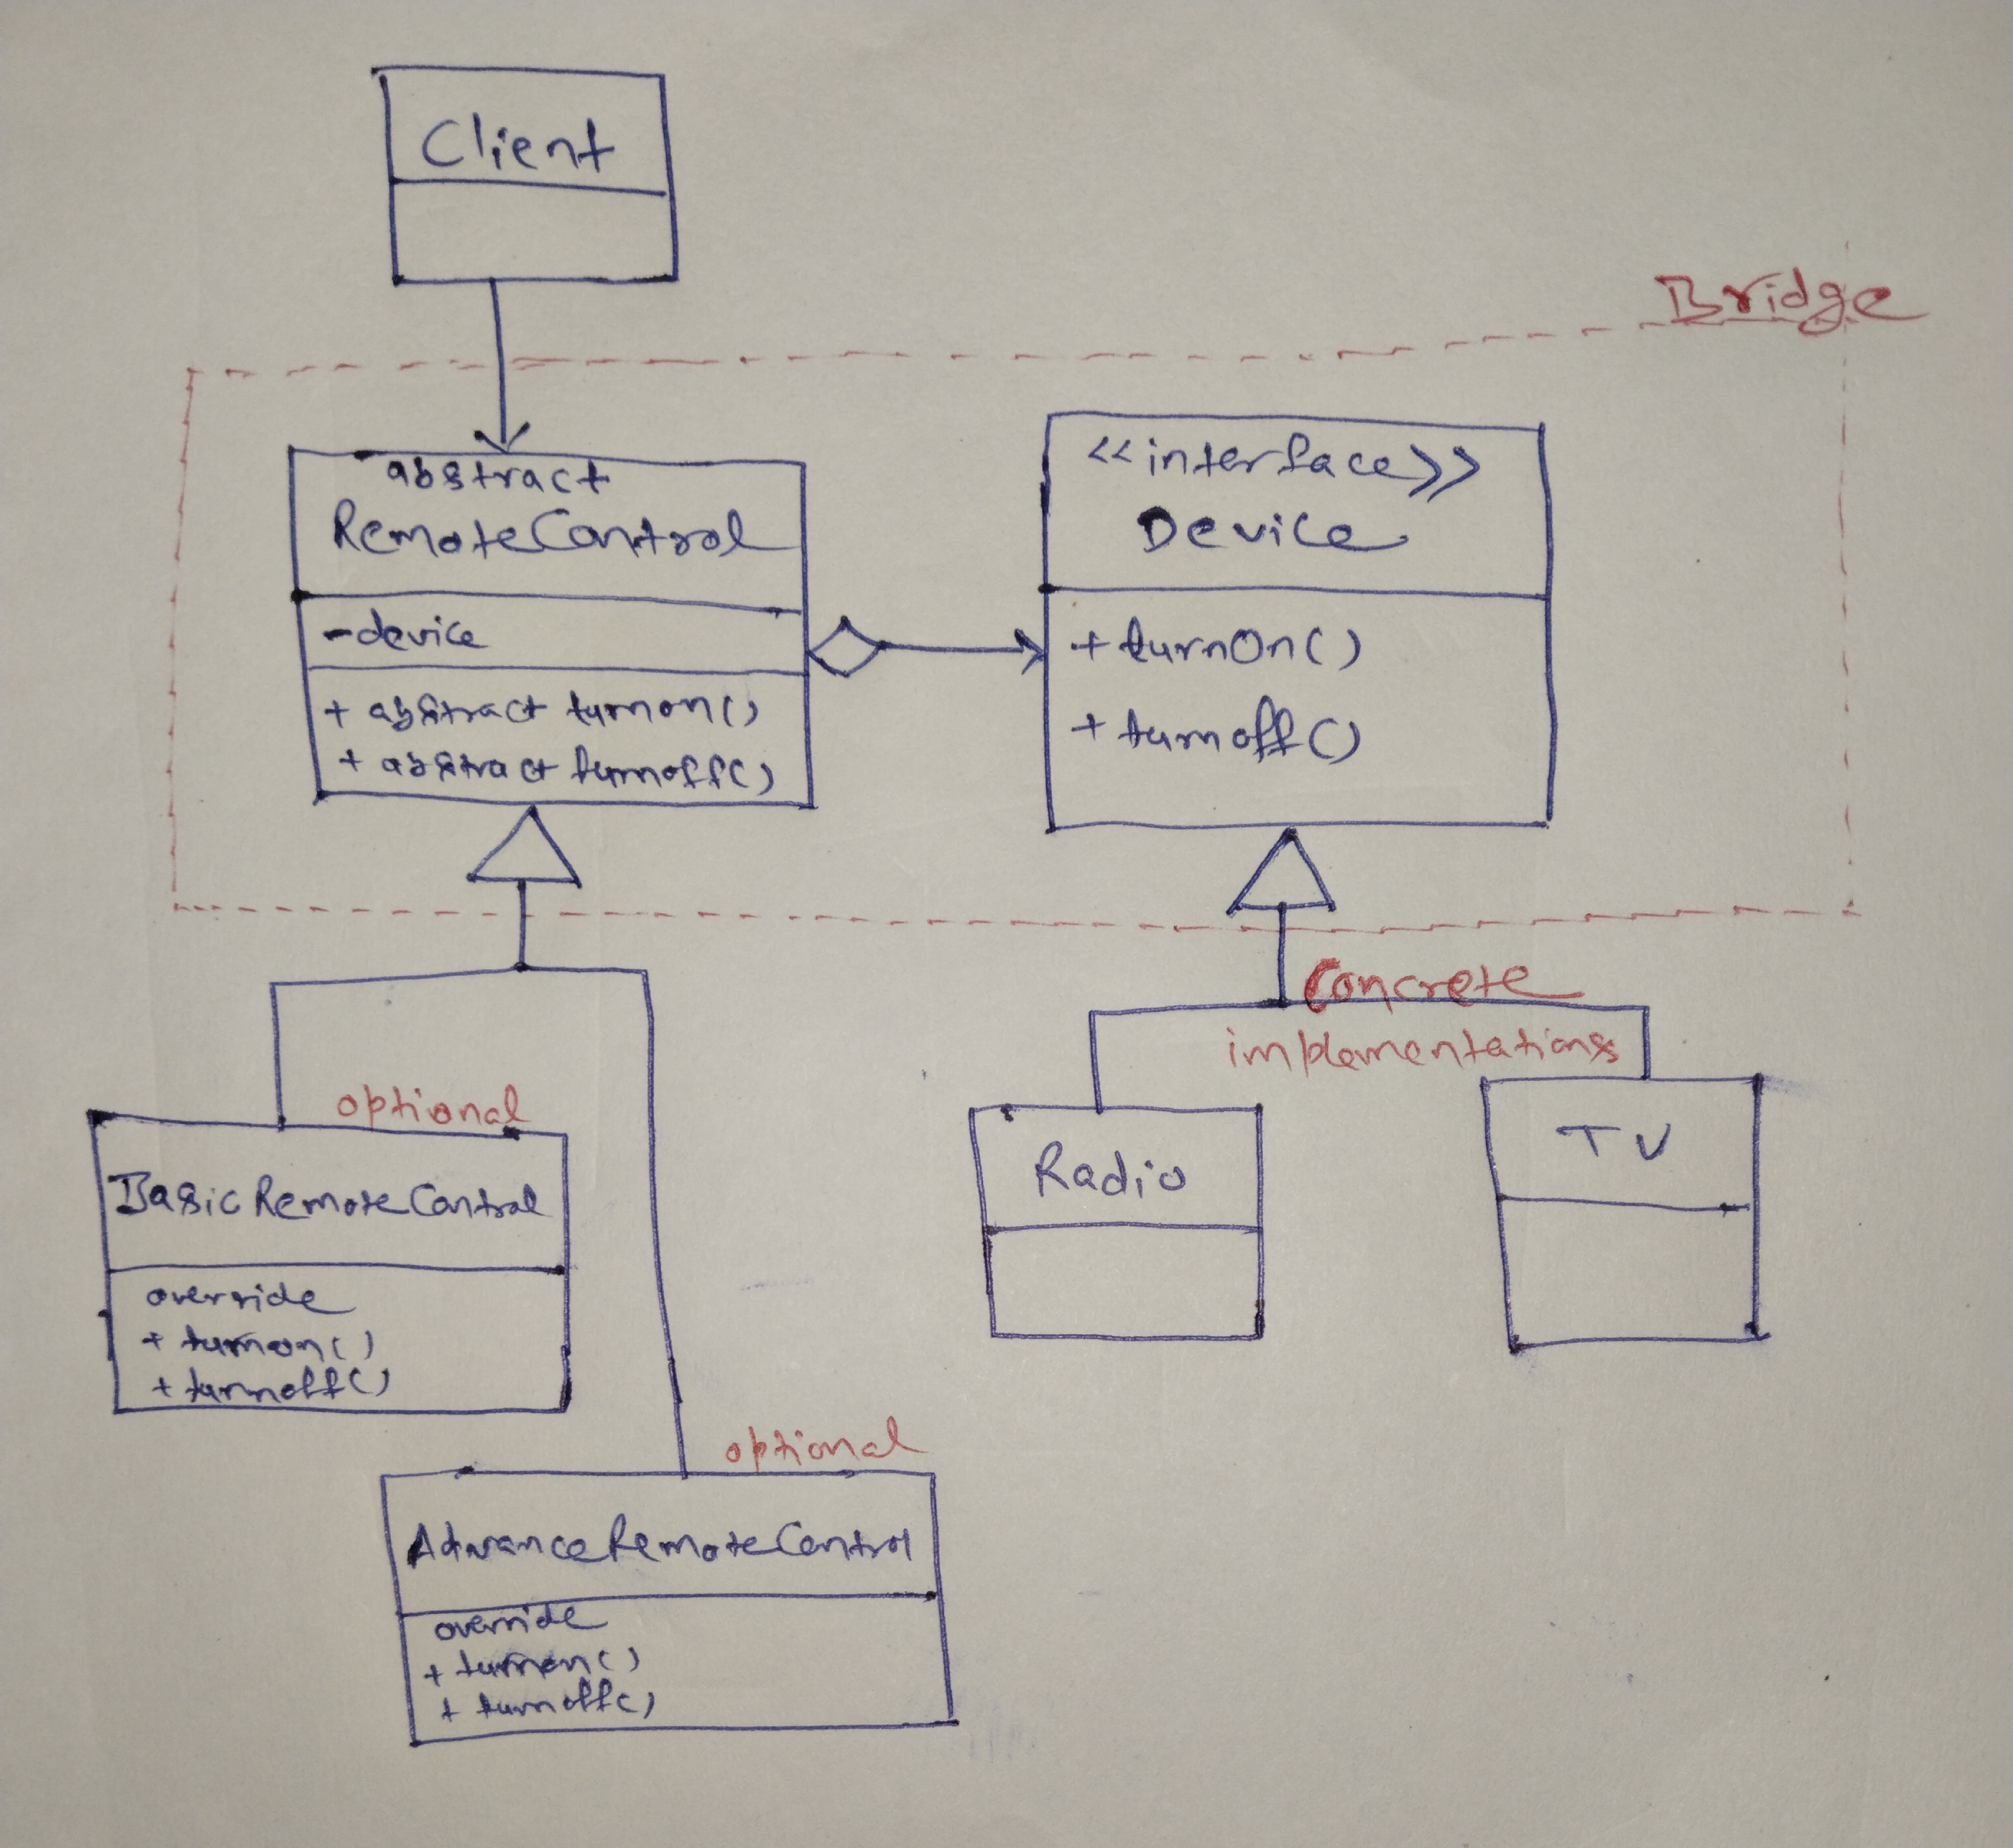 Client
Bridge
abstract
RemoteControl
-device
+ abstract turnon()
+ abstract turnoff()
<<interface>>
Device
+ turnOn()
+ turnoff()
Concrete
implementations
optional
BasicRemoteControl
override
+ turnon()
+ turnoff()
Radio
TV
optional
AdvanceRemoteControl
override
+ turnon()
+ turnoff()